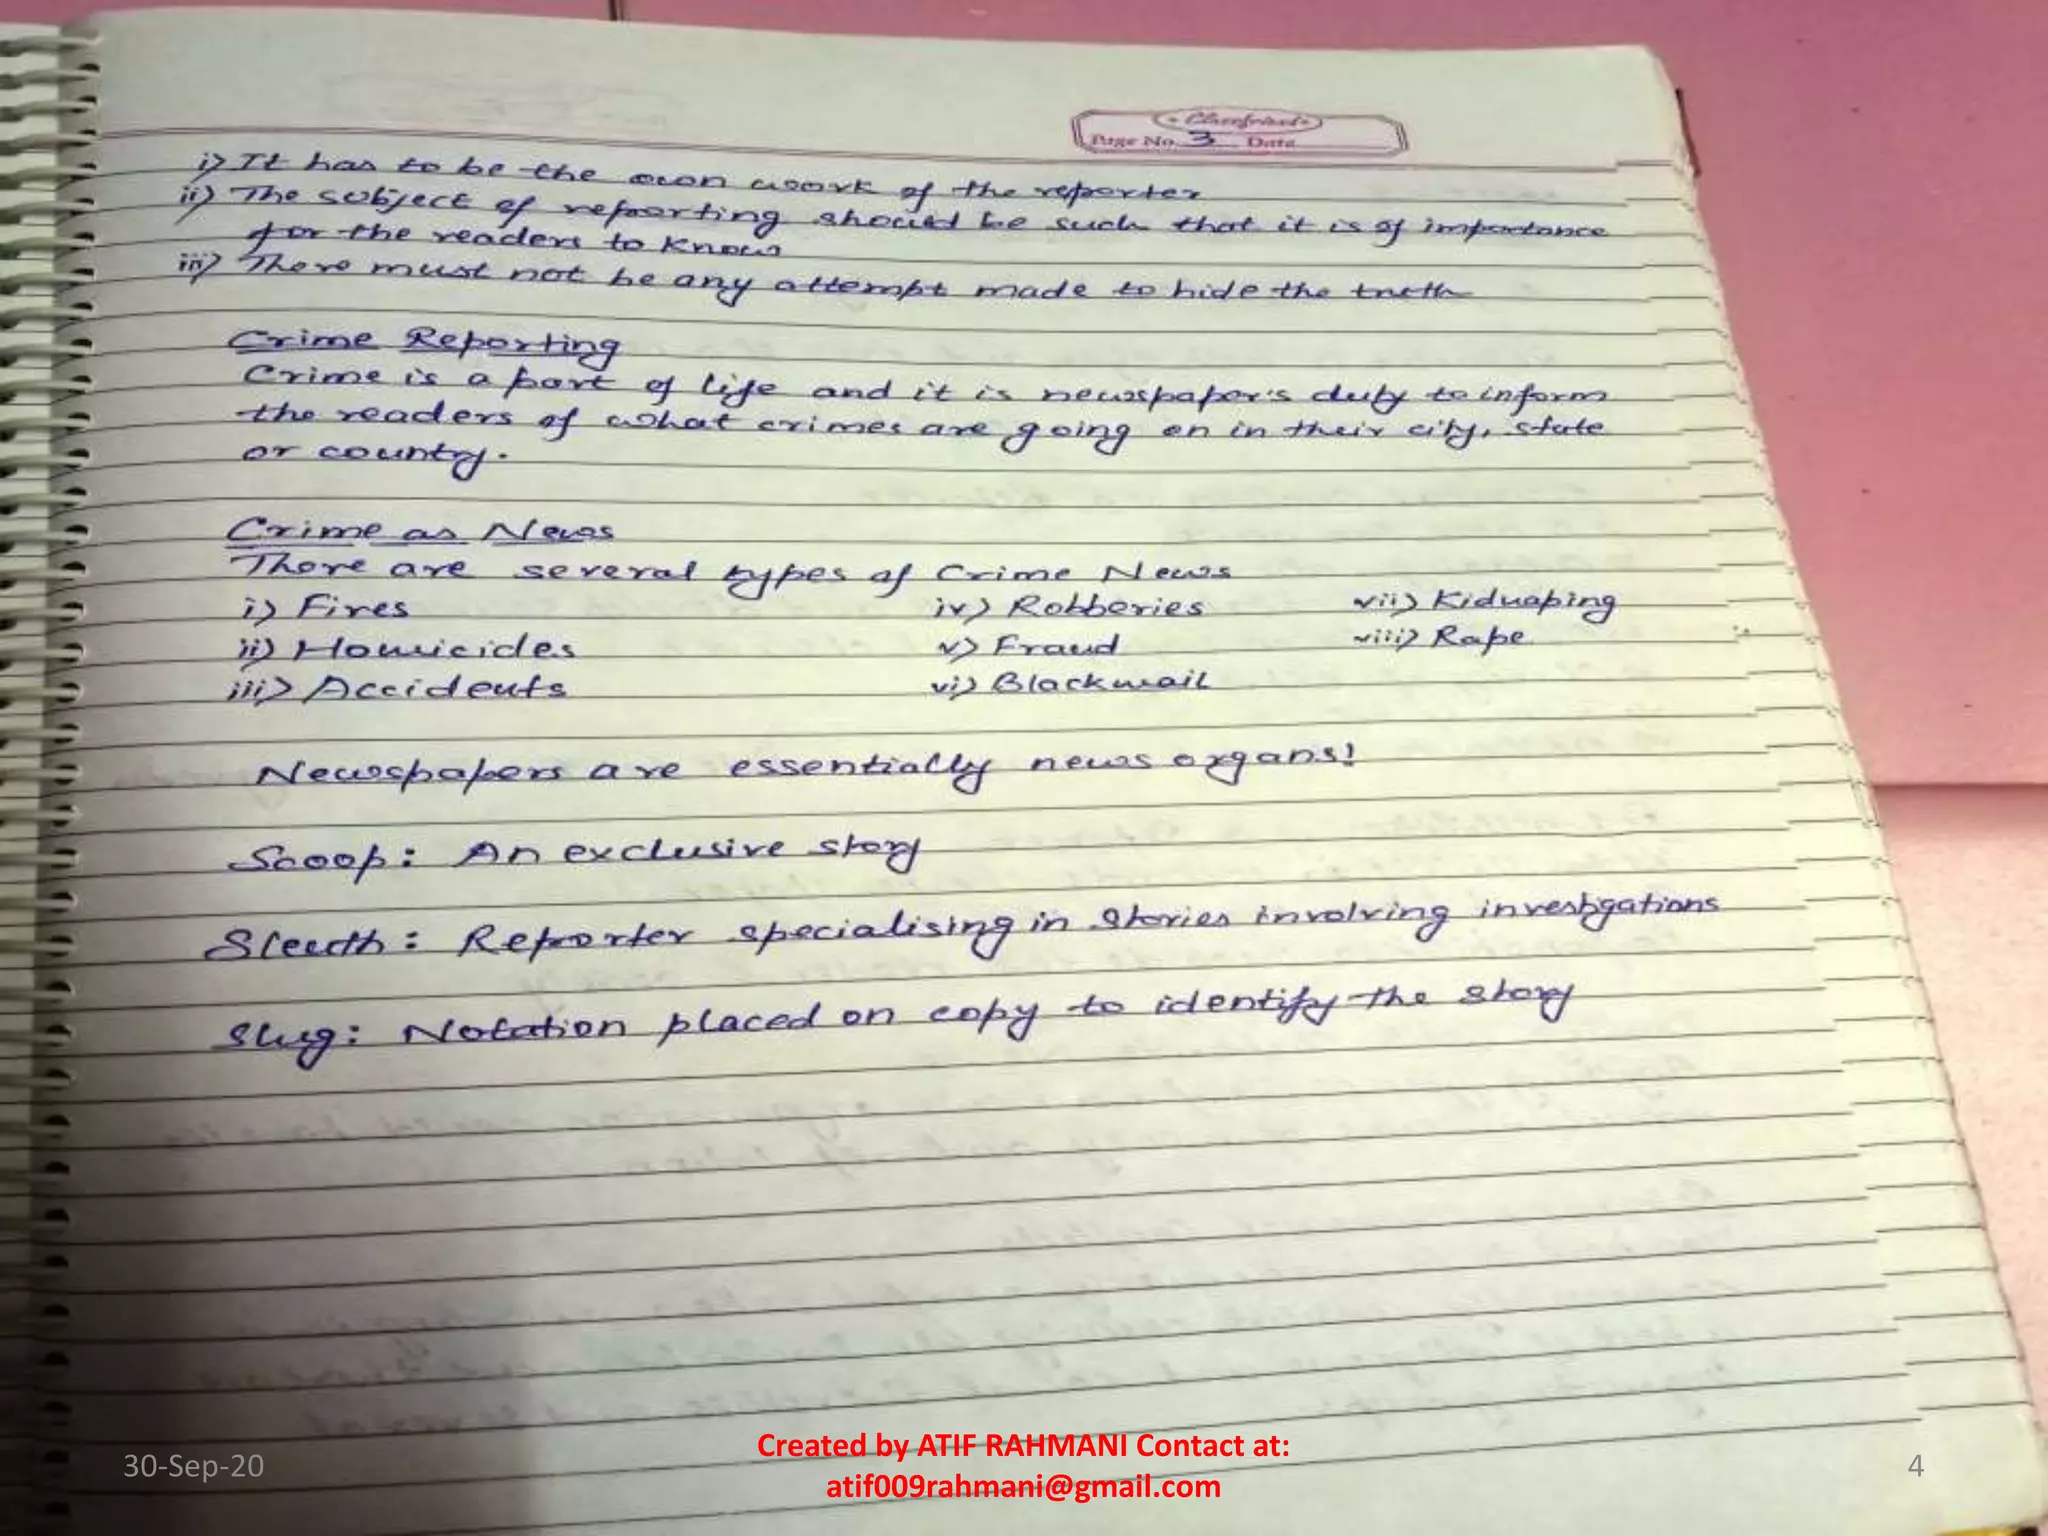 Classfriend
Page No. 3 Date
i) It has to be the own work of the reporter
ii) The subject of reporting should be such that it is of importance
for the readers to know
iii) There must not be any attempt made to hide the truth
Crime Reporting
Crime is a part of life and it is newspaper's duty to inform
the readers of what crimes are going on in their city, state
or country.
Crime as News
There are several types of Crime News
i) Fires iv) Robberies vii) Kidnaping
ii) Homicides v) Fraud viii) Rape
iii) Accidents vi) Blackmail
Newspapers are essentially news organs!
Scoop: An exclusive story
Sleuth: Reporter specialising in stories involving investigations
Slug: Notation placed on copy to identify the story
30-Sep-20
Created by ATIF RAHMANI Contact at:
atif009rahmani@gmail.com
4